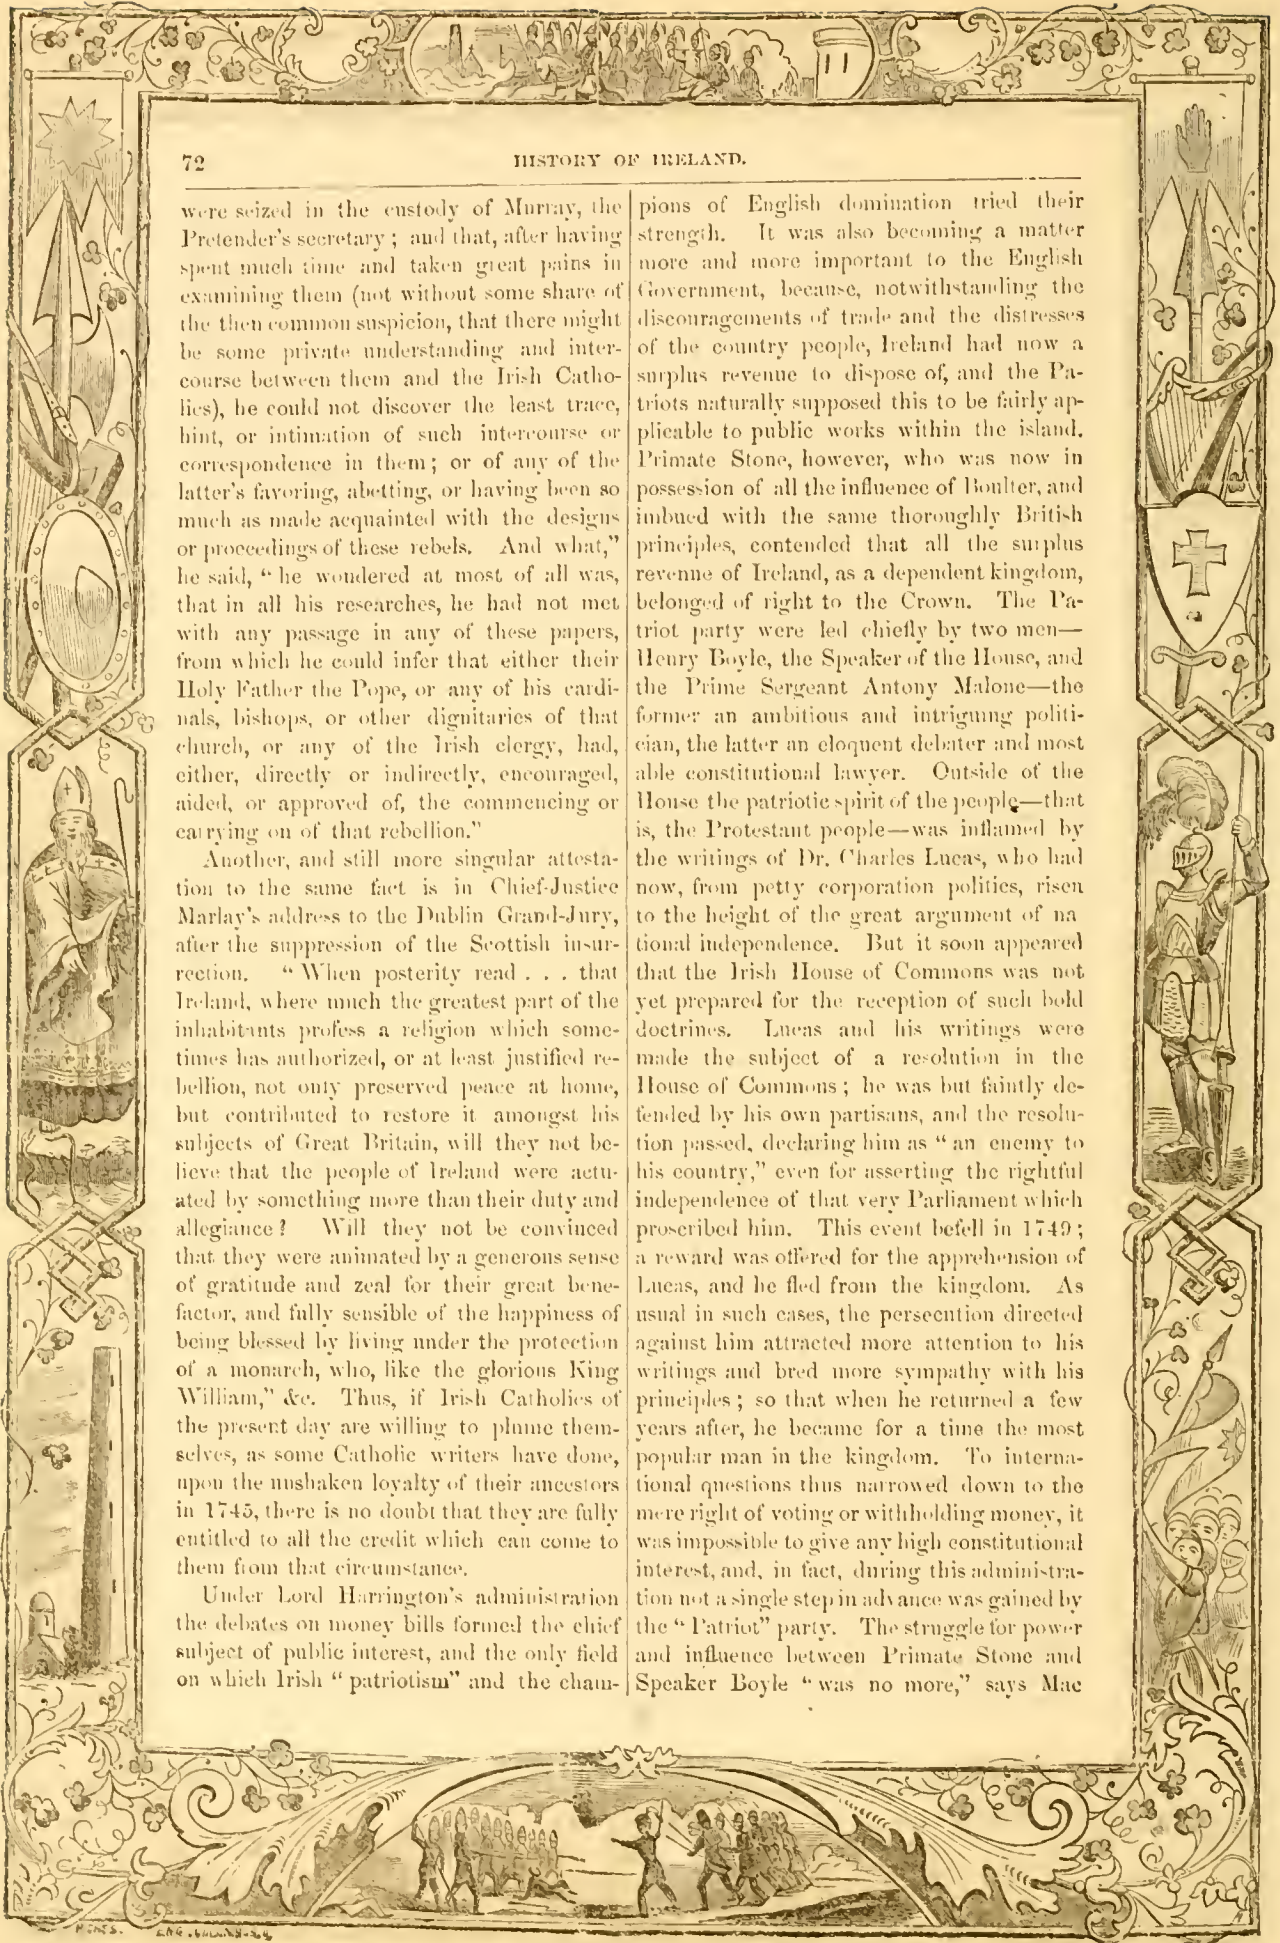 72
HISTORY OF IRELAND.
were seized in the custody of Murray, the
Pretender's secretary ; and that, after having
spent much time and taken great pains in
examining them (not without some share of
the then common suspicion, that there might
be some private understanding and inter-
course between them and the Irish Catho-
lics), he could not discover the least trace,
hint, or intimation of such intercourse or
correspondence in them ; or of any of the
latter's favoring, abetting, or having been so
much as made acquainted with the designs
or proceedings of these rebels. And what,"
he said, " he wondered at most of all was,
that in all his researches, he had not met
with any passage in any of these papers,
from which he could infer that either their
Holy Father the Pope, or any of his cardi-
nals, bishops, or other dignitaries of that
church, or any of the Irish clergy, had,
either, directly or indirectly, encouraged,
aided, or approved of, the commencing or
carrying on of that rebellion."
Another, and still more singular attesta-
tion to the same fact is in Chief-Justice
Marlay's address to the Dublin Grand-Jury,
after the suppression of the Scottish insur-
rection. " When posterity read . . . that
Ireland, where much the greatest part of the
inhabitants profess a religion which some-
times has authorized, or at least justified re-
bellion, not only preserved peace at home,
but contributed to restore it amongst his
subjects of Great Britain, will they not be-
lieve that the people of Ireland were actu-
ated by something more than their duty and
allegiance ? Will they not be convinced
that they were animated by a generous sense
of gratitude and zeal for their great bene-
factor, and fully sensible of the happiness of
being blessed by living under the protection
of a monarch, who, like the glorious King
William," &c. Thus, if Irish Catholics of
the present day are willing to plume them-
selves, as some Catholic writers have done,
upon the unshaken loyalty of their ancestors
in 1745, there is no doubt that they are fully
entitled to all the credit which can come to
them from that circumstance.
Under Lord Harrington's administration
the debates on money bills formed the chief
subject of public interest, and the only field
on which Irish " patriotism" and the cham-
pions of English domination tried their
strength. It was also becoming a matter
more and more important to the English
Government, because, notwithstanding the
discouragements of trade and the distresses
of the country people, Ireland had now a
surplus revenue to dispose of, and the Pa-
triots naturally supposed this to be fairly ap-
plicable to public works within the island.
Primate Stone, however, who was now in
possession of all the influence of Boulter, and
imbued with the same thoroughly British
principles, contended that all the surplus
revenue of Ireland, as a dependent kingdom,
belonged of right to the Crown. The Pa-
triot party were led chiefly by two men—
Henry Boyle, the Speaker of the House, and
the Prime Sergeant Antony Malone—the
former an ambitious and intriguing politi-
cian, the latter an eloquent debater and most
able constitutional lawyer. Outside of the
House the patriotic spirit of the people—that
is, the Protestant people—was inflamed by
the writings of Dr. Charles Lucas, who had
now, from petty corporation politics, risen
to the height of the great argument of na
tional independence. But it soon appeared
that the Irish House of Commons was not
yet prepared for the reception of such bold
doctrines. Lucas and his writings were
made the subject of a resolution in the
House of Commons ; he was but faintly de-
fended by his own partisans, and the resolu-
tion passed, declaring him as " an enemy to
his country," even for asserting the rightful
independence of that very Parliament which
proscribed him. This event befell in 1749 ;
a reward was offered for the apprehension of
Lucas, and he fled from the kingdom. As
usual in such cases, the persecution directed
against him attracted more attention to his
writings and bred more sympathy with his
principles ; so that when he returned a few
years after, he became for a time the most
popular man in the kingdom. To interna-
tional questions thus narrowed down to the
mere right of voting or withholding money, it
was impossible to give any high constitutional
interest, and, in fact, during this administra-
tion not a single step in advance was gained by
the " Patriot" party. The struggle for power
and influence between Primate Stone and
Speaker Boyle " was no more," says Mac